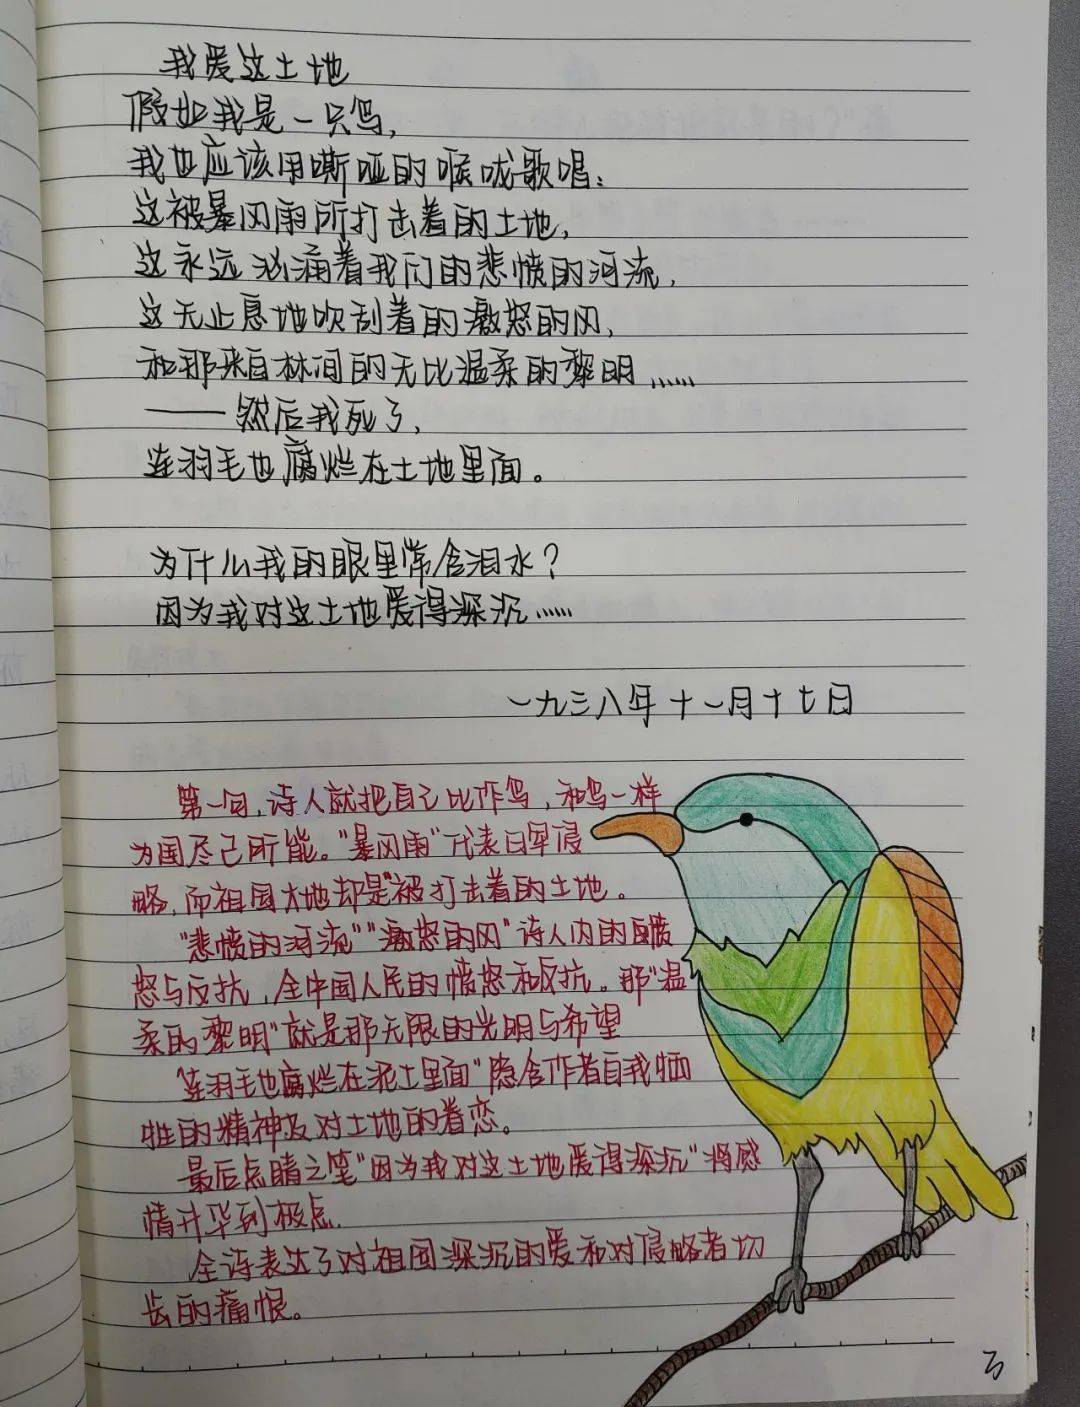 我爱这土地
假如我是一只鸟,
我也应该用嘶哑的喉咙歌唱:
这被暴风雨所打击着的土地,
这永远汹涌着我们的悲愤的河流,
这无止息地吹刮着的激怒的风,
和那来自林间的无比温柔的黎明……
——然后我死了,
连羽毛也腐烂在土地里面。
为什么我的眼里常含泪水?
因为我对这土地爱得深沉……
一九三八年十一月十七日
第一句,诗人就把自己比作鸟,和鸟一样
为国尽己所能。"暴风雨"代表日军侵
略,而祖国大地却是"被打击着的土地。
"悲愤的河流""激怒的风"诗人内的愤
怒与反抗,全中国人民的愤怒和反抗。那"温
柔的黎明"就是那无限的光明与希望
"连羽毛也腐烂在泥土里面"隐含作者自我牺
牲的精神及对土地的眷恋。
最后点睛之笔"因为我对这土地爱得深沉"将感
情升华到极点.
全诗表达了对祖国深沉的爱和对侵略者切
齿的痛恨。